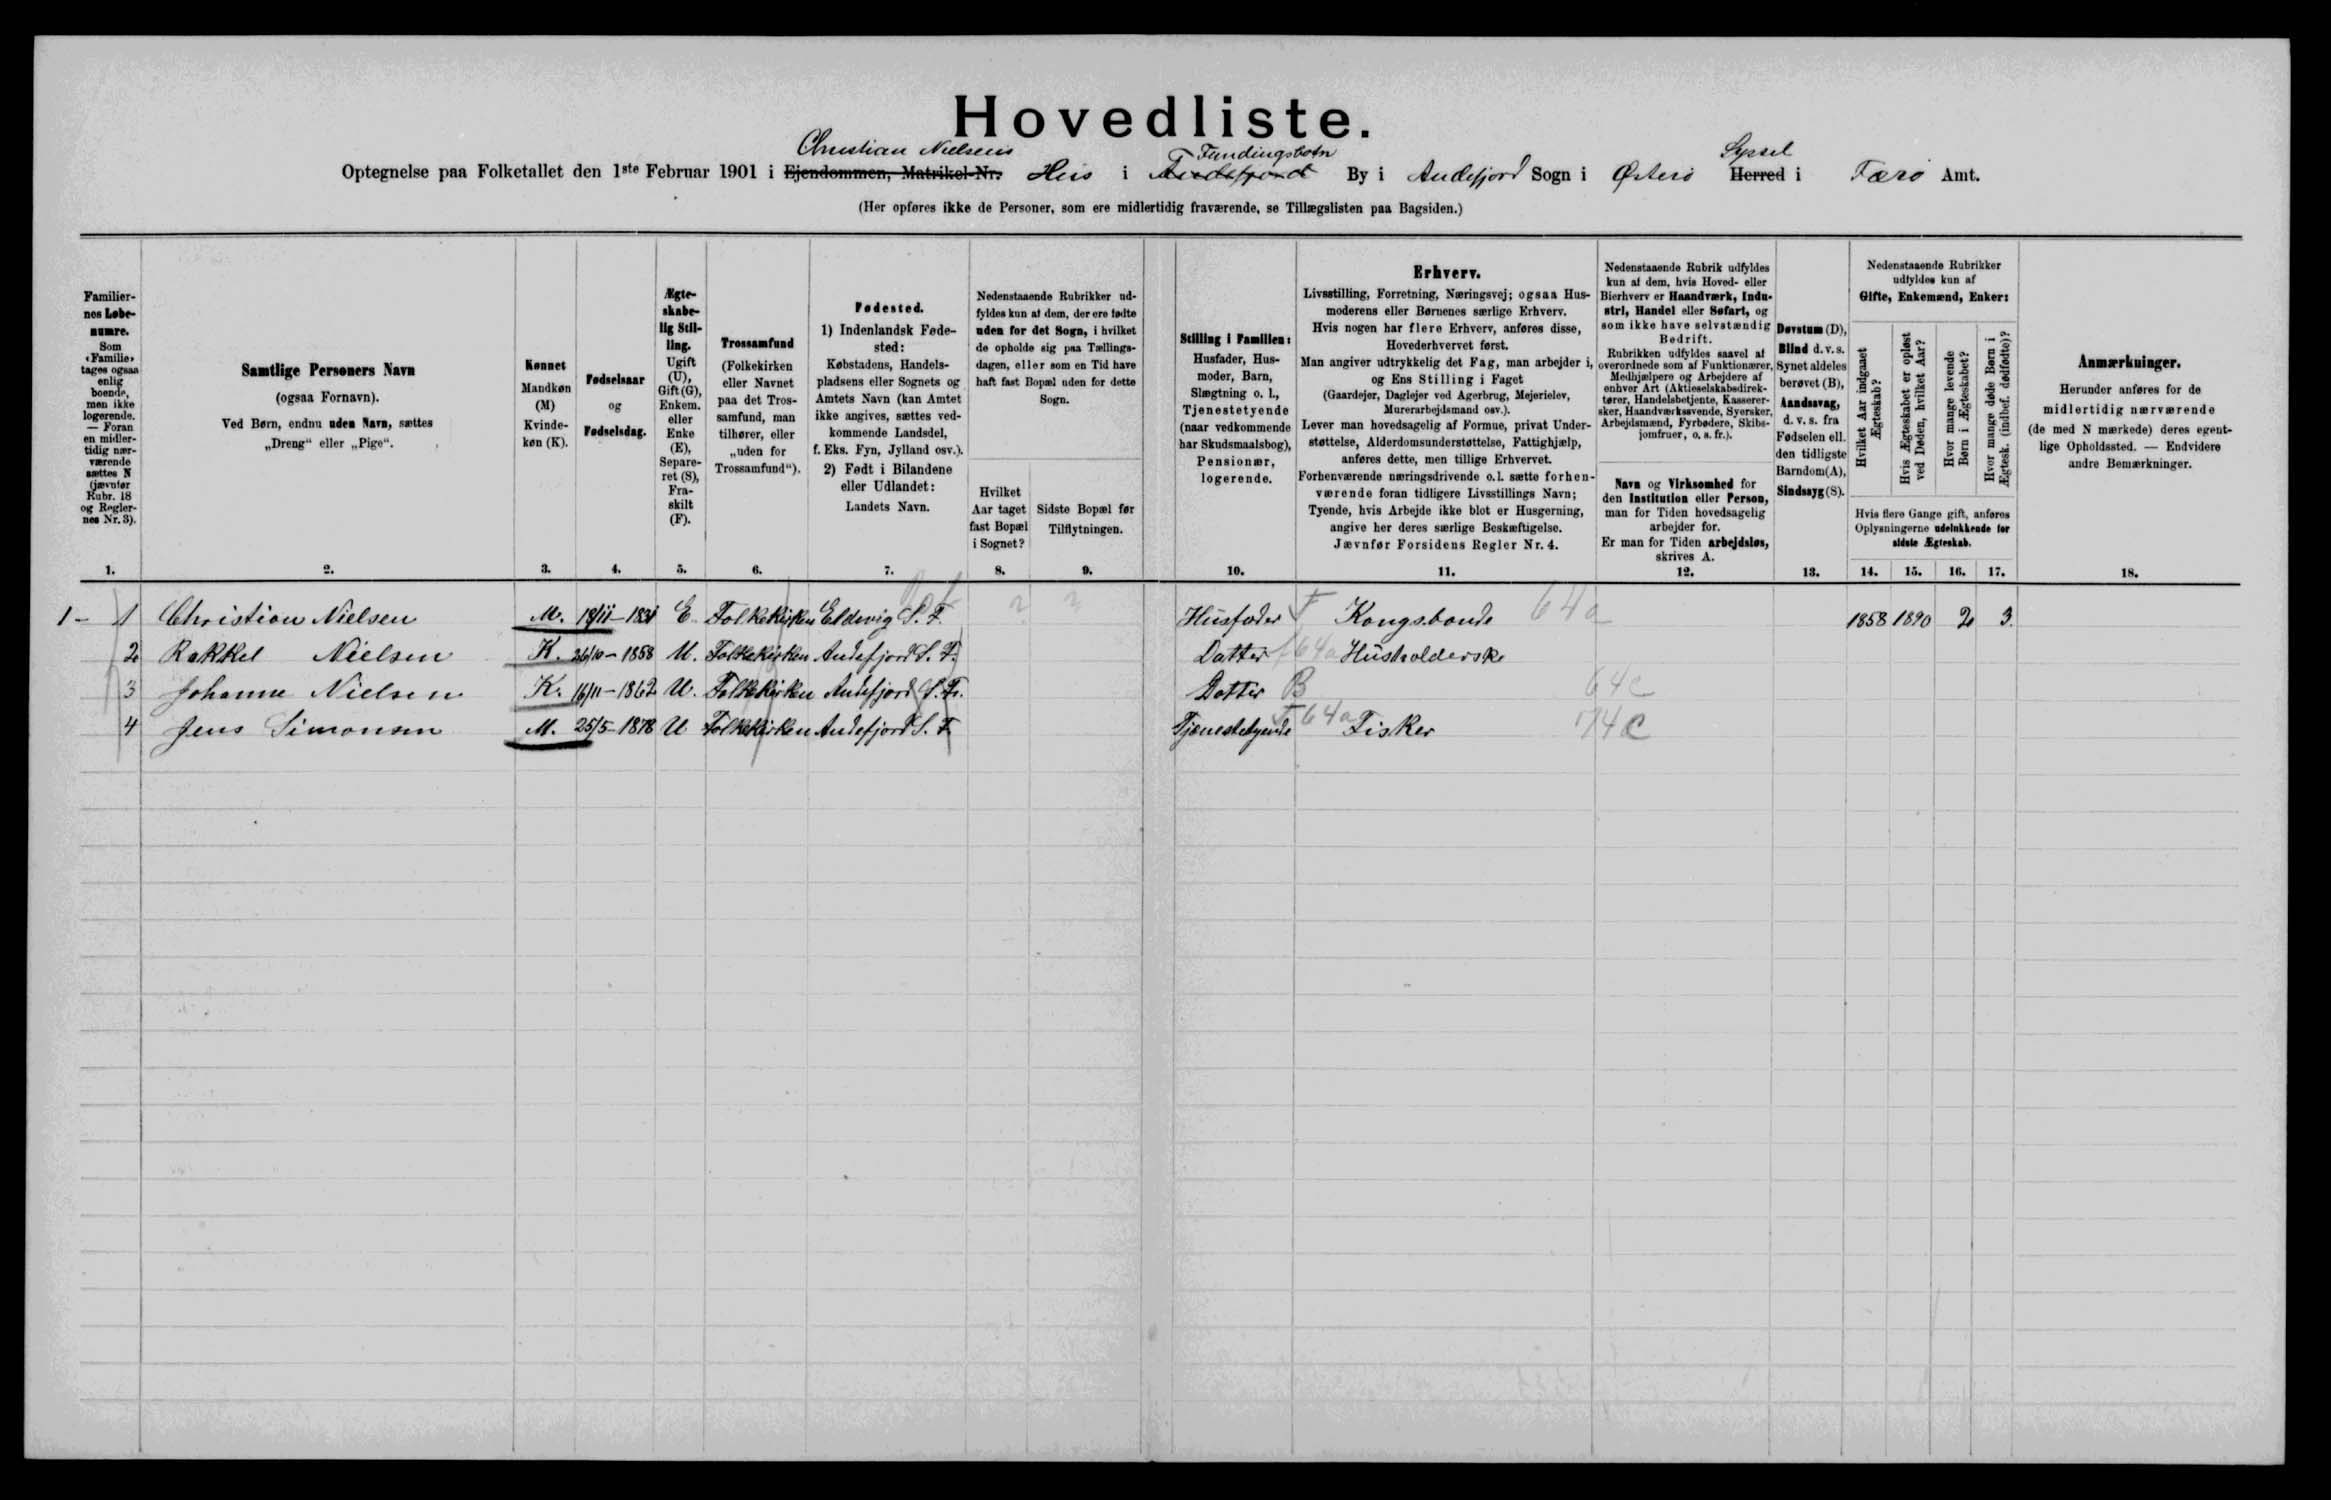 Hovedliste.
Christian Nielsens Fundingsbotn Syssel
Optegnelse paa Folketallet den 1ste Februar 1901 i Ejendommen, Matrikel-Nr. Hus i By i Andefjord Sogn i Østerø Herred i Færø Amt.
(Her opføres ikke de Personer, som ere midlertidig fraværende, se Tillægslisten paa Bagsiden.)
Familier-
nes Løbe-
numre.
Som
‹Familie›
tages ogsaa
enlig
boende,
men ikke
logerende.
— Foran
en midler-
tidig nær-
værende
sættes N
(jævnfør
Rubr. 18
og Regler-
nes Nr. 3).
1.
Samtlige Personers Navn
(ogsaa Fornavn).
Ved Børn, endnu uden Navn, sættes
„Dreng“ eller „Pige“.
2.
Kønnet
Mandkøn
(M)
Kvinde-
køn (K).
3.
Fødselsaar
og
Fødselsdag.
4.
Ægte-
skabe-
lig Stil-
ling.
Ugift
(U),
Gift (G),
Enkem.
eller
Enke
(E),
Separe-
ret (S),
Fra-
skilt
(F).
5.
Trossamfund
(Folkekirken
eller Navnet
paa det Tros-
samfund, man
tilhører, eller
„uden for
Trossamfund“).
6.
Fødested.
1) Indenlandsk Føde-
sted:
Købstadens, Handels-
pladsens eller Sognets og
Amtets Navn (kan Amtet
ikke angives, sættes ved-
kommende Landsdel,
f. Eks. Fyn, Jylland osv.).
2) Født i Bilandene
eller Udlandet:
Landets Navn.
7.
Nedenstaaende Rubrikker ud-
fyldes kun af dem, der ere fødte
uden for det Sogn, i hvilket
de opholde sig paa Tællings-
dagen, eller som en Tid have
haft fast Bopæl uden for dette
Sogn.
Hvilket
Aar taget
fast Bopæl
i Sognet?
8.
Sidste Bopæl før
Tilflytningen.
9.
Stilling i Familien:
Husfader, Hus-
moder, Barn,
Slægtning o. l.,
Tjenestetyende
(naar vedkommende
har Skudsmaalsbog),
Pensionær,
logerende.
10.
Erhverv.
Livsstilling, Forretning, Næringsvej; ogsaa Hus-
moderens eller Børnenes særlige Erhverv.
Hvis nogen har flere Erhverv, anføres disse,
Hovederhvervet først.
Man angiver udtrykkelig det Fag, man arbejder i,
og Ens Stilling i Faget
(Gaardejer, Daglejer ved Agerbrug, Mejerielev,
Murerarbejdsmand osv.).
Lever man hovedsagelig af Formue, privat Under-
støttelse, Alderdomsunderstøttelse, Fattighjælp,
anføres dette, men tillige Erhvervet.
Forhenværende næringsdrivende o. l. sætte forhen-
værende foran tidligere Livsstillings Navn;
Tyende, hvis Arbejde ikke blot er Husgerning,
angive her deres særlige Beskæftigelse.
Jævnfør Forsidens Regler Nr. 4.
11.
Nedenstaaende Rubrik udfyldes
kun af dem, hvis Hoved- eller
Bierhverv er Haandværk, Indu-
stri, Handel eller Søfart, og
som ikke have selvstændig
Bedrift.
Rubrikken udfyldes saavel af
overordnede som af Funktionærer,
Medhjælpere og Arbejdere af
enhver Art (Aktieselskabsdirek-
tører, Handelsbetjente, Kasserer-
sker, Haandværkssvende, Syersker,
Arbejdsmænd, Fyrbødere, Skibs-
jomfruer, o. s. fr.).
Navn og Virksomhed for
den Institution eller Person,
man for Tiden hovedsagelig
arbejder for.
Er man for Tiden arbejdsløs,
skrives A.
12.
Døvstum (D),
Blind d. v. s.
Synet aldeles
berøvet (B),
Aandssvag,
d. v. s. fra
Fødselen ell.
den tidligste
Barndom (A),
Sindssyg (S).
13.
Nedenstaaende Rubrikker
udfyldes kun af
Gifte, Enkemænd, Enker:
Hvilket Aar indgaaet
Ægteskab?
Hvis Ægteskabet er opløst
ved Døden, hvilket Aar?
Hvor mange levende
Børn i Ægteskabet?
Hvor mange døde Børn i
Ægtesk. (indbef. dødfødte)?
Hvis flere Gange gift, anføres
Oplysningerne udelukkende for
sidste Ægteskab.
14. 15. 16. 17.
Anmærkninger.
Herunder anføres for de
midlertidig nærværende
(de med N mærkede) deres egent-
lige Opholdssted. — Endvidere
andre Bemærkninger.
18.
1 - 1 Christian Nielsen M. 18/11 - 1831 E Folkekirken Eldevig S. F. Husfader F Kongsbonde 64a 1858 1890 2 3.
2 Rakkel Nielsen K. 26/10 - 1858 U. Folkekirken Andefjord S. F. Datter f 64a Husholderske
3 Johanne Nielsen K. 16/11 - 1862 U. Folkekirken Andefjord S. F. Datter B 64c
4 Jens Simonsen M. 25/5 - 1878 U Folkekirken Andefjord S. F. Tjenestetyende F 64a Fisker 74c